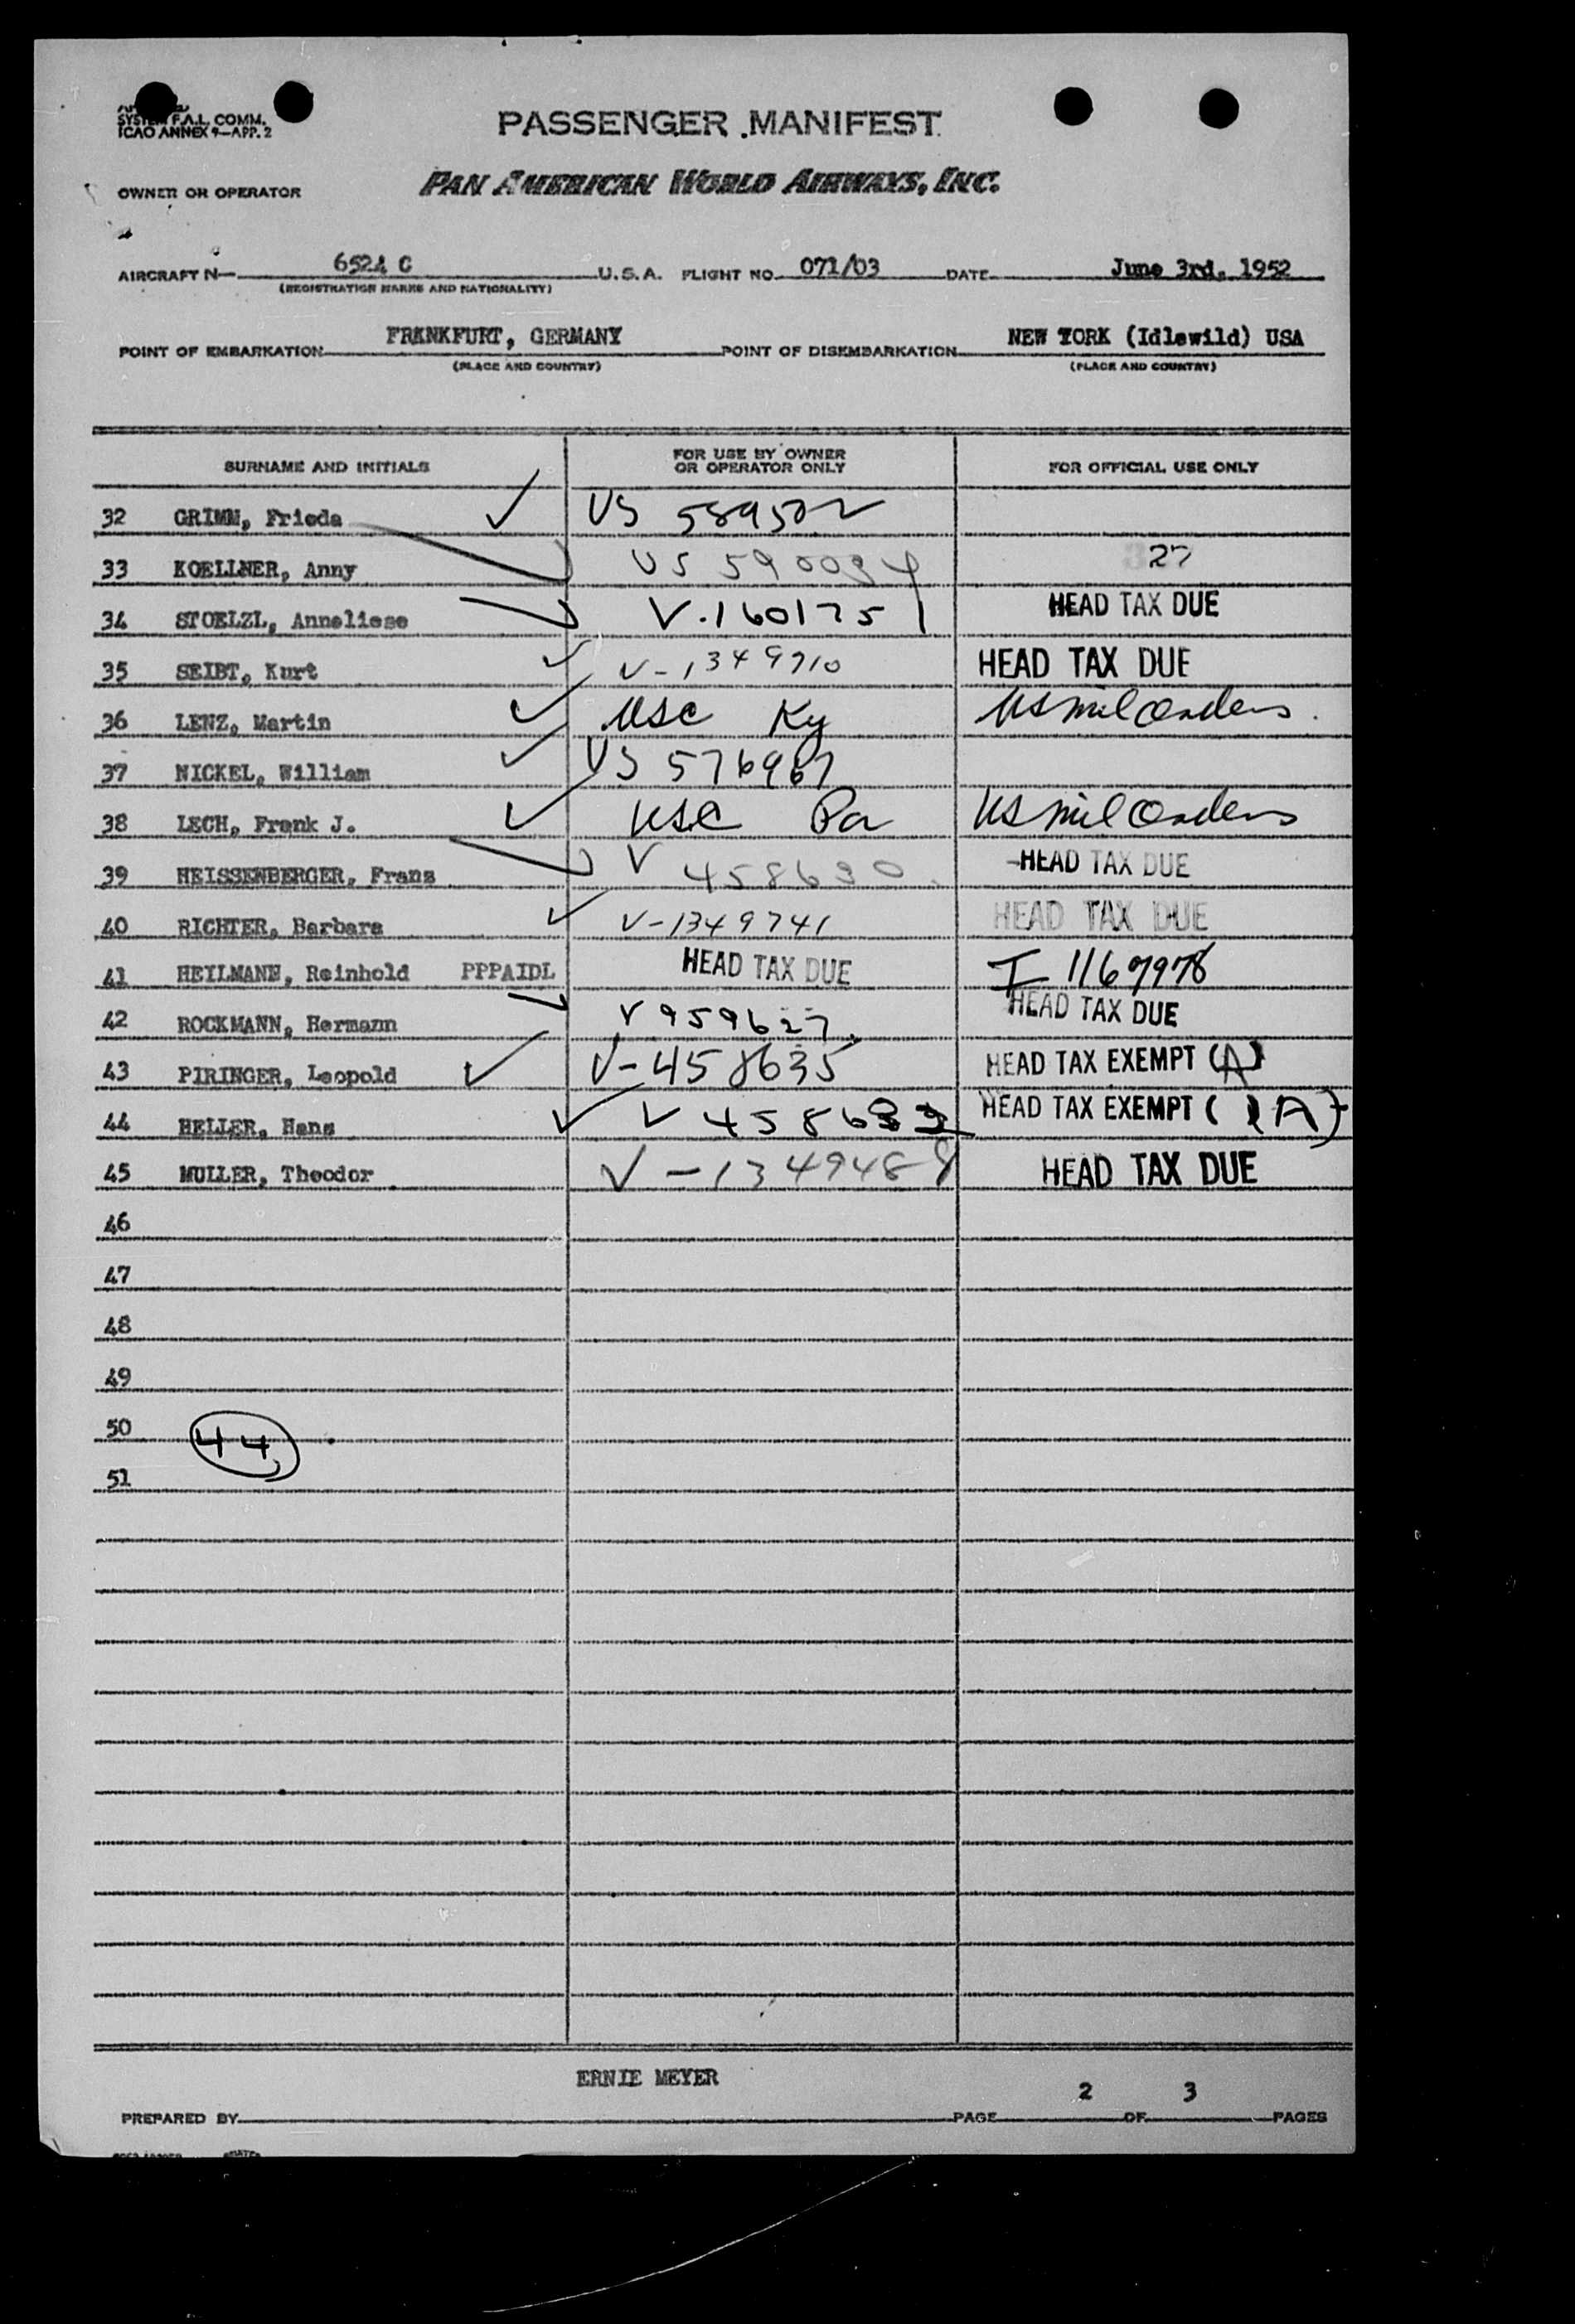 SYSTEM F.A.L. COMM.
ICAO ANNEX 9—APP. 2
PASSENGER MANIFEST
OWNER OR OPERATOR PAN AMERICAN WORLD AIRWAYS, INC.
AIRCRAFT N— 6524 C U.S.A. FLIGHT NO. 071/03 DATE June 3rd, 1952
(REGISTRATION MARKS AND NATIONALITY)
POINT OF EMBARKATION FRANKFURT, GERMANY POINT OF DISEMBARKATION NEW YORK (Idlewild) USA
(PLACE AND COUNTRY) (PLACE AND COUNTRY)
SURNAME AND INITIALS FOR USE BY OWNER OR OPERATOR ONLY FOR OFFICIAL USE ONLY
32 GRIMM, Frieda ✓ US 589502
33 KOELLNER, Anny US 590034 27
34 STOELZL, Anneliese V-160175 HEAD TAX DUE
35 SEIBT, Kurt ✓ V-1349710 HEAD TAX DUE
36 LENZ, Martin ✓ USC Ky US mil Orders.
37 NICKEL, William ✓ US 576967
38 LECH, Frank J. ✓ USC Pa US mil Orders
39 HEISSENBERGER, Franz V 458630 HEAD TAX DUE
40 RICHTER, Barbara ✓ V-1349741 HEAD TAX DUE
41 HEILMANN, Reinhold PPPAIDL HEAD TAX DUE I 1167978
42 ROCKMANN, Hermann V 959627 HEAD TAX DUE
43 PIRINGER, Leopold ✓ V-458635 HEAD TAX EXEMPT (A)
44 HELLER, Hans ✓ V 458632 HEAD TAX EXEMPT (A)
45 MULLER, Theodor V-1349488 HEAD TAX DUE
46
47
48
49
50
44
51
ERNIE MEYER
PREPARED BY PAGE 2 OF 3 PAGES